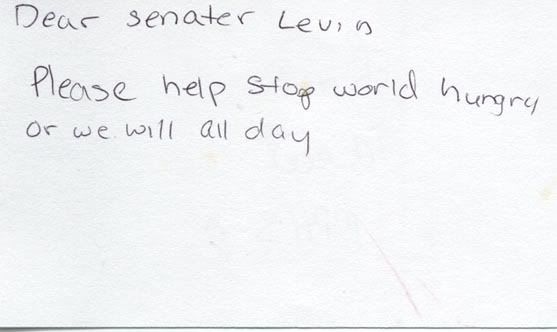 Dear senater Levin
Please help stop world hungry
or we will all day